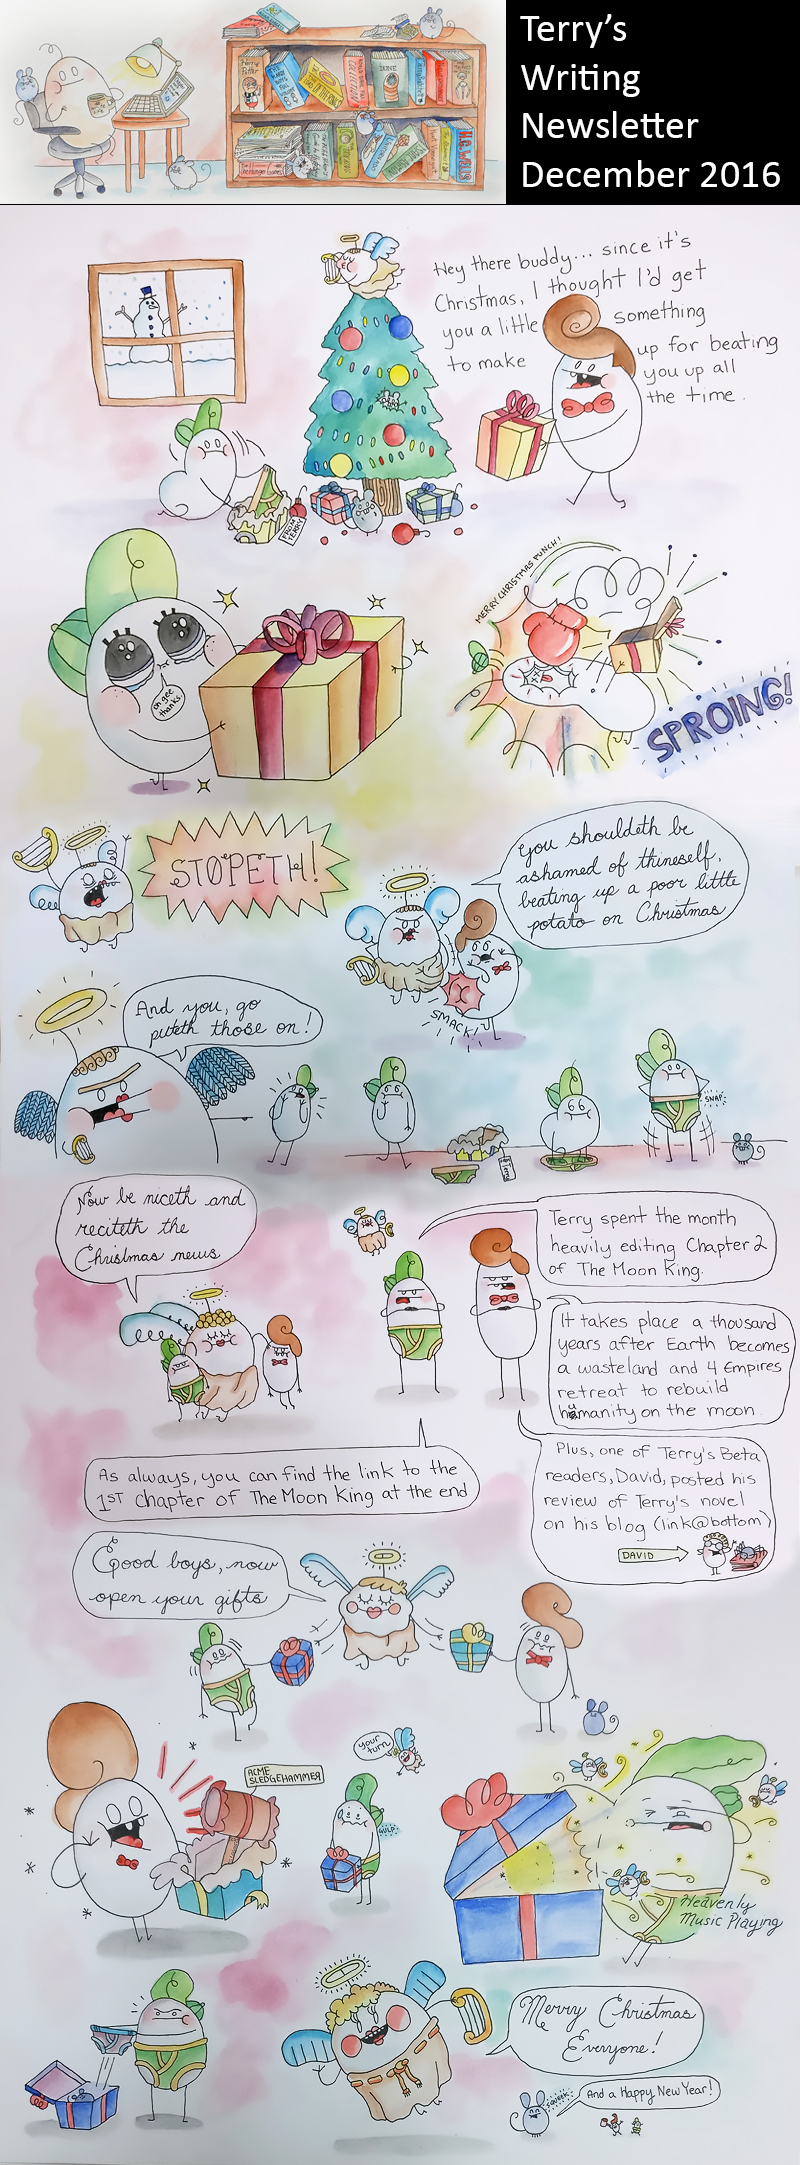 Terry's
Writing
Newsletter
December 2016
Harry
Potter
DUNE
COLLECTION
The Hunger Games
H.G. WELLS
Hey there buddy... since it's
Christmas, I thought I'd get
you a little something
to make up for beating
you up all
the time.
FROM
TERRY
oh gee
thanks.
MERRY CHRISTMAS PUNCH!
SPROING!
STOPETH!
You shouldeth be
ashamed of thineself,
beating up a poor little
potato on Christmas
SMACK!
And you, go
puteth those on!
SNAP
Now be niceth and
reciteth the
Christmas news
Terry spent the month
heavily editing Chapter 2
of The Moon King.
It takes place a thousand
years after Earth becomes
a wasteland and 4 Empires
retreat to rebuild
humanity on the moon.
As always, you can find the link to the
1ST chapter of The Moon King at the end
Plus, one of Terry's Beta
readers, David, posted his
review of Terry's novel
on his blog (link@bottom)
DAVID
Good boys, now
open your gifts
ACME
SLEDGEHAMMER
your
turn
GULP
Heavenly
Music Playing
Merry Christmas
Everyone!
squeek
And a Happy New Year!